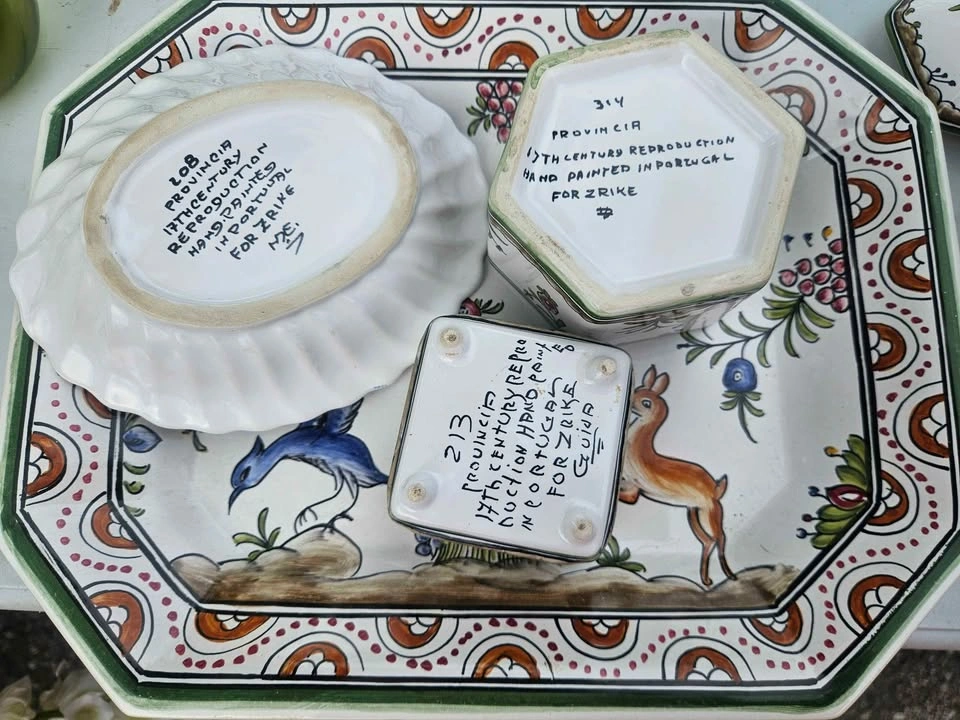 208
PROVINCIA
17THCENTURY
REPRODUCTION
HAND.PAINTED
IN PORTUGAL
FOR ZRIKE
314
PROVINCIA
17TH CENTURY REPRODUCTION
HAND PAINTED IN PORTUGAL
FOR ZRIKE
213
PROVINCIA
17TH, CENTURY REPRO
DUCTION HAND PAINTED
IN PORTUGAL
FOR ZRIKE
GUIDA